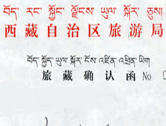 བོད་ རང་ སྐྱོང་ ལྗོངས་ ཡུལ་ སྐོར་ ཅུས།
西藏自治区旅游局
བོད་ལྗོངས་ཡུལ་སྐོར་ངོས་འཛིན་འཕྲིན་ཡིག
旅藏确认函 No